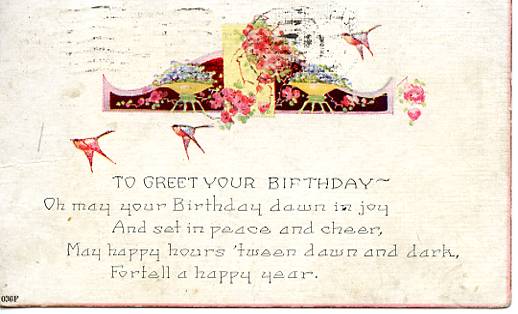 TO GREET YOUR BIRTHDAY~
Oh may your Birthday dawn in joy
And set in peace and cheer,
May happy hours 'tween dawn and dark,
Fortell a happy year.
036F